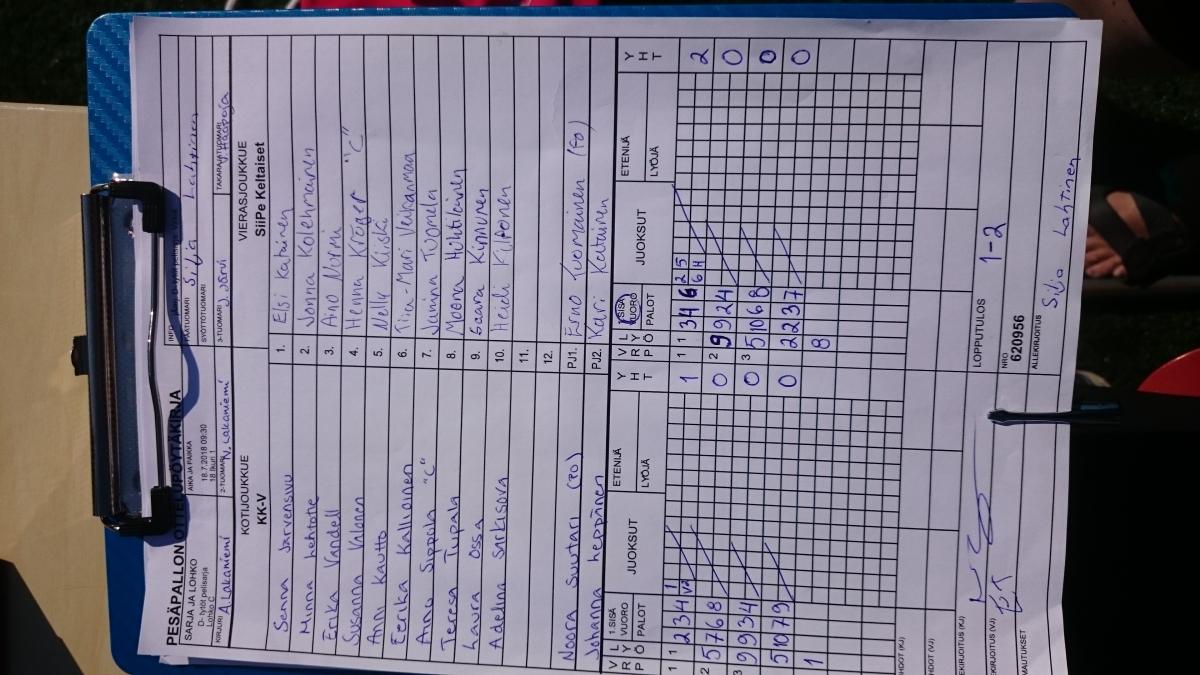 PESÄPALLON OTTELUPÖYTÄKIRJA
SARJA JA LOHKO
D- tytöt pelisarja
Lohko C
AIKA JA PAIKKA
18.7.2018 09:30
KIRJURI A. Lakaniemi
2-TUOMARI N. Lakaniemi
Silja Lahtinen
SYÖTTÖTUOMARI
3-TUOMARI J. Järvi
TAKARAJATUOMARI
KOTIJOUKKUE
KK-V
VIERASJOUKKUE
SiiPe Keltaiset
Senna Järvensivu 1. Elsi Katainen
Minna Lehtotie 2. Jonna Kolehmainen
Erika Vandell 3. Aino Nurmi
Susanna Valonen 4. Henna Kröger "C"
Anni Kautto 5. Nelly Kiiski
Eerika Kallioinen 6. Tiia-Mari Veikanmaa
Anna Sippola "C" 7. Janina Tuomela
Teresa Tupala 8. Moona Huhtilainen
Laura Ossa 9. Saara Kinnunen
Adelina Sarkisova 10. Heidi Kilponen
11.
12.
Noora Suutari (PO) PJ1. Eino Tuomainen (PO)
Johanna Heppänen PJ2. Kari Katainen
V R P L Y Ö 1.SISÄ VUORO PALOT JUOKSUT ETENIJÄ LYÖJÄ Y H T
V R P L Y Ö 1.SISÄ VUORO PALOT JUOKSUT ETENIJÄ LYÖJÄ Y H T
1 1 2 3 4 1 1
1 1 3 4 6 2 5 6 H 2
2 5 7 6 8 0
2 9 9 2 4 0
3 9 9 3 4 0
3 5 10 6 8 0
5 10 7 9 0
2 2 3 7 0
1
8
LOPPUTULOS 1-2
NRO
620956
ALLEKIRJOITUS
Silja Lahtinen